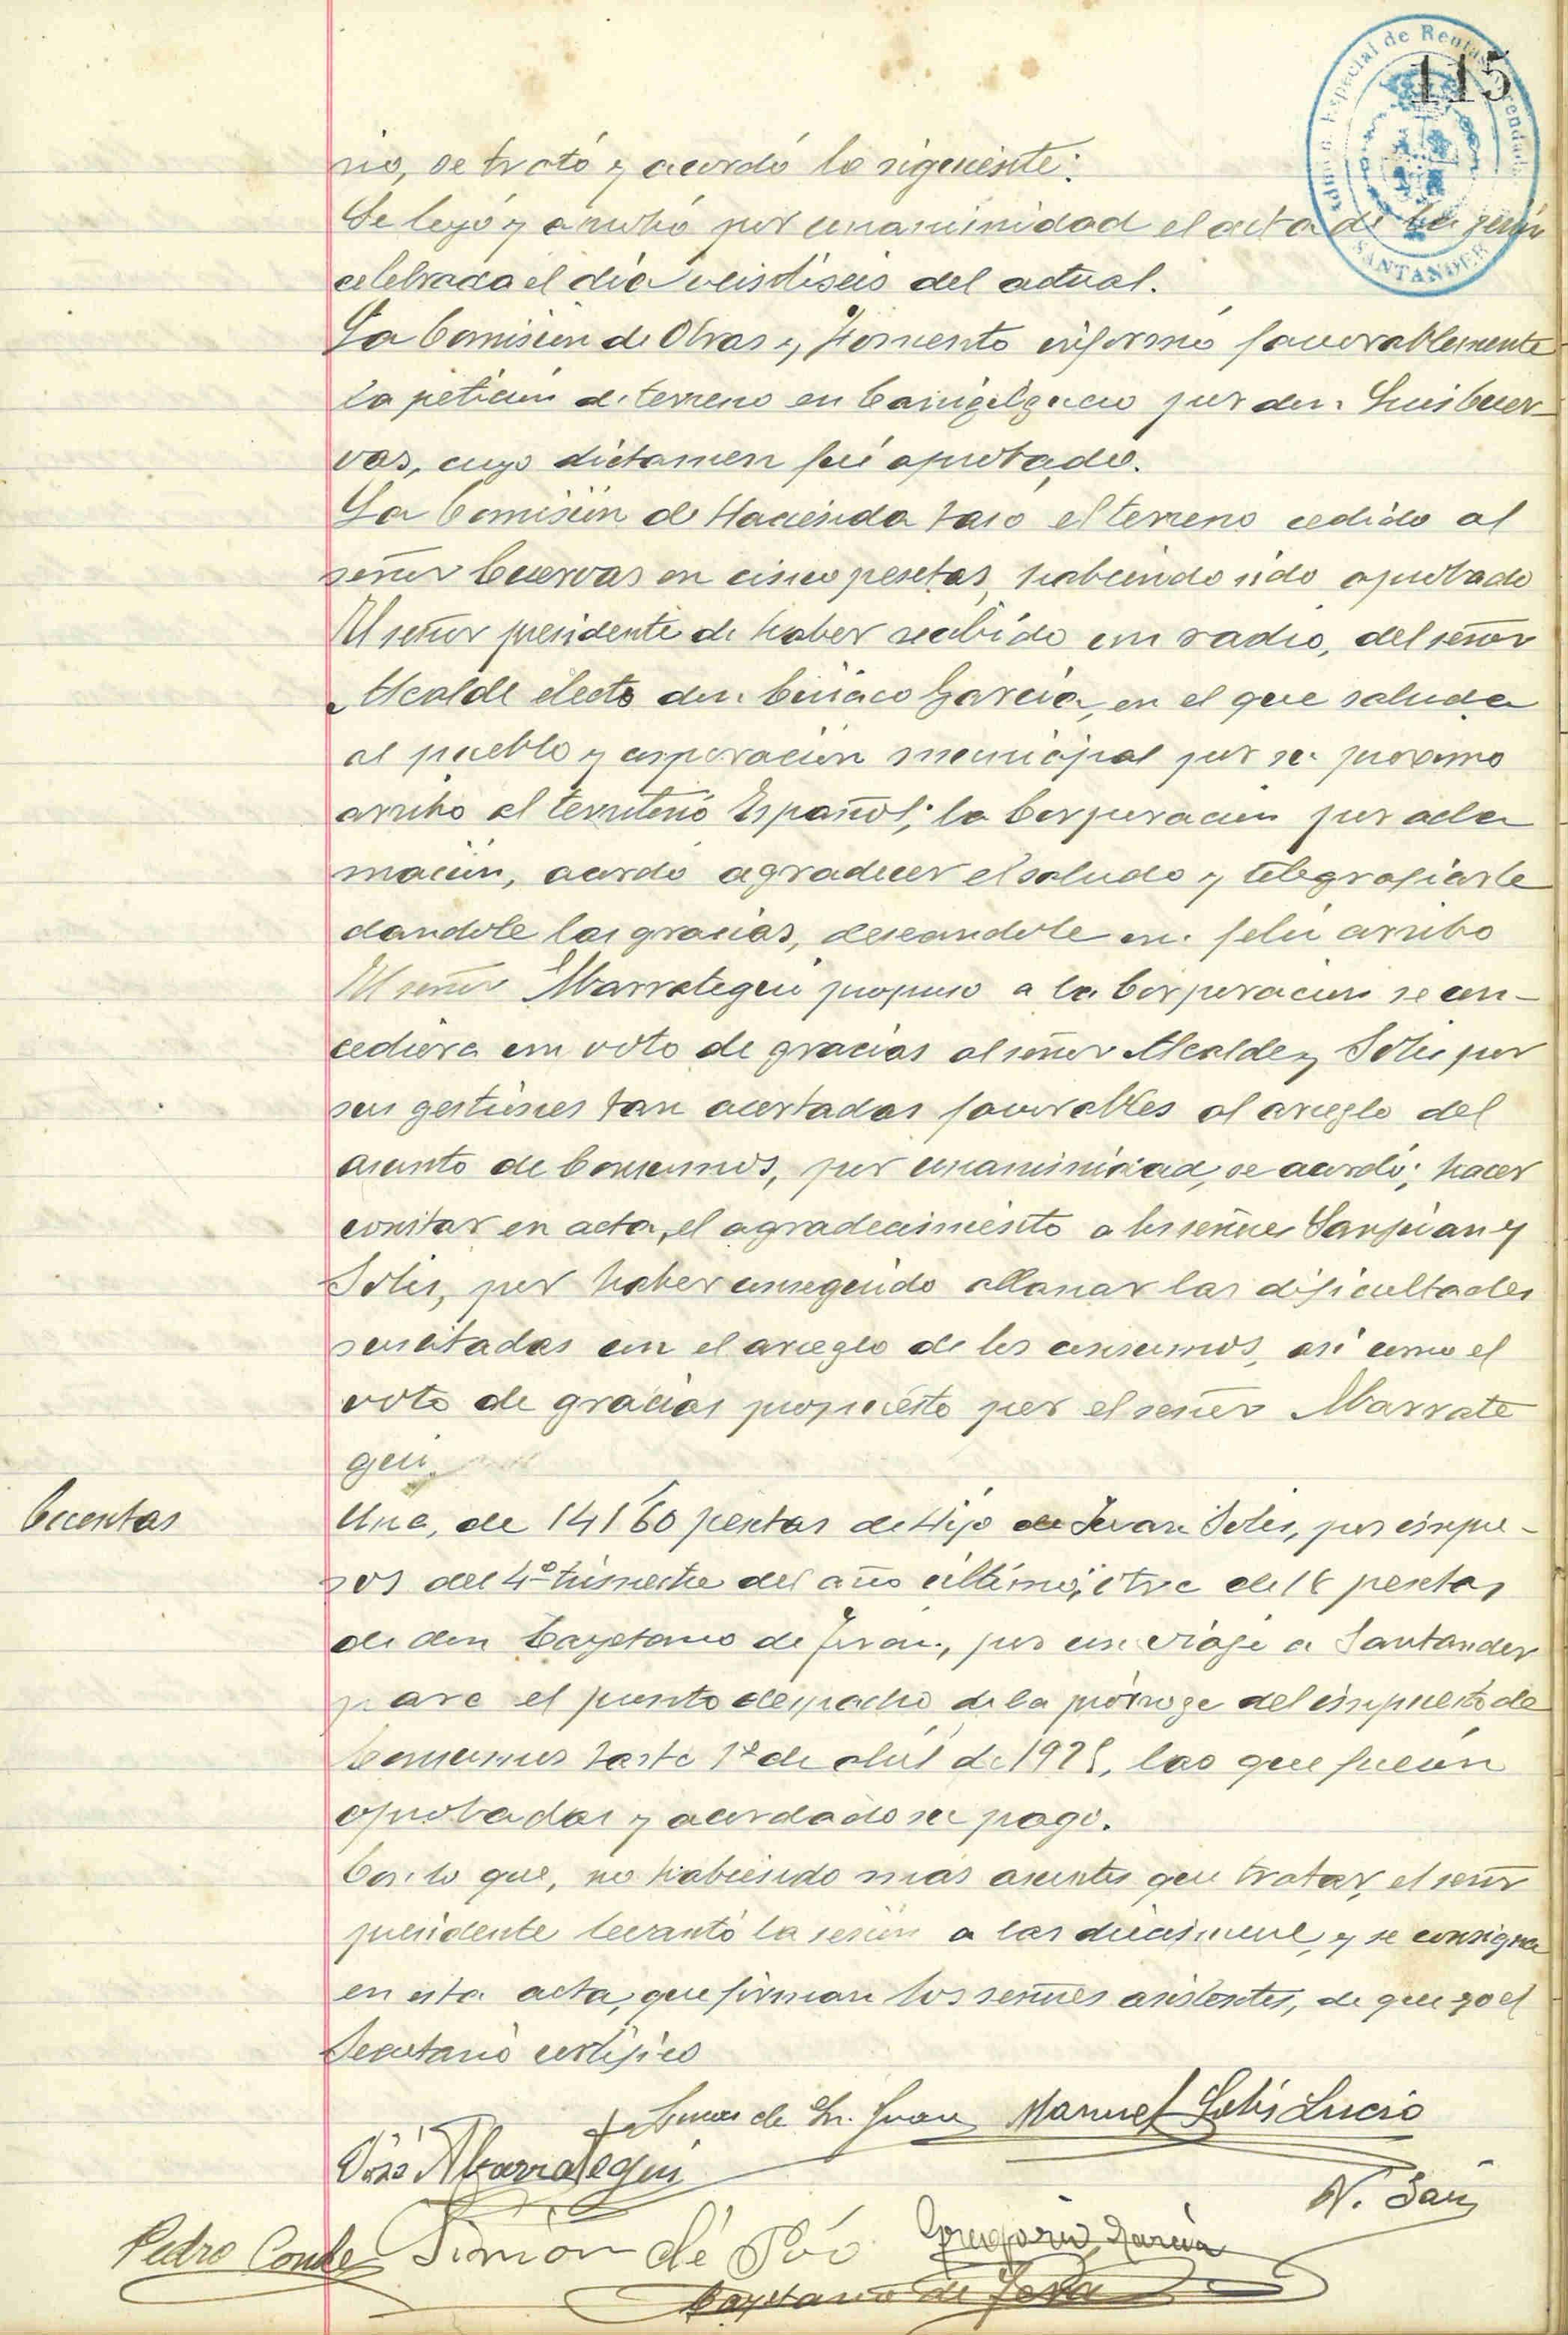 115
Especial de Rentas Arrendadas
SANTANDER
rio, se trató y acordó lo siguiente:
Se leyó y aprobó por unanimidad el acta de la sesión
celebrada el día veistiseis del actual.
La Comisión de Obras y Fomento informó favorablemente
la petición de terreno en por don Luis Cuer-
vas, cuyo dictamen fué aprobado.
La Comisión de Hacienda tasó el terreno cedido al
señor Cuervas en cinco pesetas, habiendo sido aprobado
El señor presidente de haber recibido un radio, del señor
Alcalde electo don Ciriaco García, en el que saluda
al pueblo y corporación municipal por su proximo
arribo al territorio Español; la Corporación por acla
mación, acordó agradecer el saludo y telegrafiarle
dandole las gracias, deseandole un feliz arribo
El señor Abarrategui propuso a la Corporación se con-
cediera un voto de gracias al señor Alcalde y Solis por
sus gestiones tan acertadas favorables al arreglo del
asunto de Consumos, por unanimidad, se acordó; hacer
constar en acta, el agradecimiento a los señores Sanjuan y
Solis, por haber conseguido allanar las dificultades
suscitadas con el arreglo de los consumos, asi como el
voto de gracias propuesto por el señor Abarrate
gui.
Cuentas
Una, de 141'60 pesetas de Hijo de Juan Solis, por impre-
sos del 4º trimestre del año último; otra de 18 pesetas
de don Cayetano de Juan, por un viaje a Santander
para el pronto despacho de la prórroga del impuesto de
Consumos hasta 1º de abril de 1925, las que fueron
aprobadas y acordado su pago.
Con lo que, no habiendo más asuntos que tratar, el señor
presidente levantó la sesión a las diecinueve, y se consigna
en esta acta, que firman los señores asistentes, de que yo el
Secretario certifico
de Sn. Juan Manuel Solis Lucio
José Abarrategui
N. Saiz
Pedro Conde Simón de Póo Gregorio García
Cayetano de